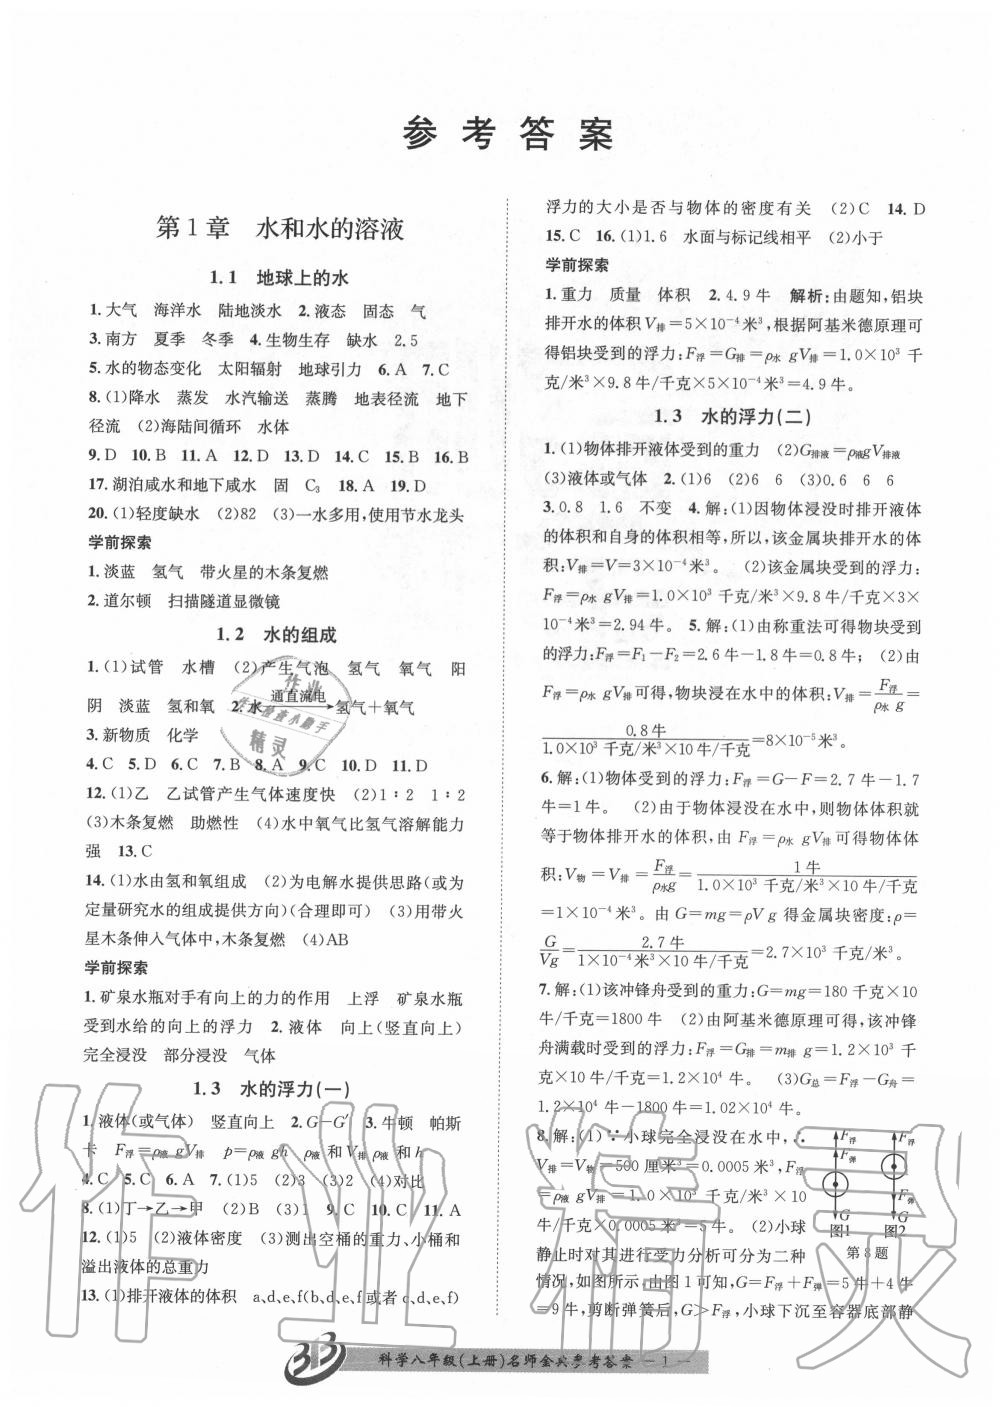 参考答案
第1章 水和水的溶液
1.1 地球上的水
1.大气 海洋水 陆地淡水 2.液态 固态 气
3.南方 夏季 冬季 4.生物生存 缺水 2.5
5.水的物态变化 太阳辐射 地球引力 6.A 7.C
8.(1)降水 蒸发 水汽输送 蒸腾 地表径流 地下
径流 (2)海陆间循环 水体
9.D 10.B 11.A 12.D 13.D 14.C 15.B 16.B
17.湖泊咸水和地下咸水 固 C₃ 18.A 19.D
20.(1)轻度缺水 (2)82 (3)一水多用,使用节水龙头
学前探索
1.淡蓝 氢气 带火星的木条复燃
2.道尔顿 扫描隧道显微镜
1.2 水的组成
1.(1)试管 水槽 (2)产生气泡 氢气 氧气 阳
阴 淡蓝 氢和氧 2.水 通直流电→ 氢气+氧气
3.新物质 化学
4.C 5.D 6.C 7.B 8.A 9.C 10.D 11.D
12.(1)乙 乙试管产生气体速度快 (2)1∶2 1∶2
(3)木条复燃 助燃性 (4)水中氧气比氢气溶解能力
强 13.C
14.(1)水由氢和氧组成 (2)为电解水提供思路(或为
定量研究水的组成提供方向)(合理即可) (3)用带火
星木条伸入气体中,木条复燃 (4)AB
学前探索
1.矿泉水瓶对手有向上的力的作用 上浮 矿泉水瓶
受到水给的向上的浮力 2.液体 向上(竖直向上)
完全浸没 部分浸没 气体
1.3 水的浮力(一)
1.液体(或气体) 竖直向上 2.G−G′ 3.牛顿 帕斯
卡 F浮=ρ液 gV排 p=ρ液 gh ρ液和V排 ρ液和h
4.C 5.C 6.A 7.(1)5 (2)3 (3)2 (4)对比
8.(1)丁→乙→甲 (2)B (3)1 9.C 10.C 11.A
12.(1)5 (2)液体密度 (3)测出空桶的重力、小桶和
溢出液体的总重力
13.(1)排开液体的体积 a、d、e、f(b、d、e、f或者c、d、e、f)
浮力的大小是否与物体的密度有关 (2)C 14.D
15.C 16.(1)1.6 水面与标记线相平 (2)小于
学前探索
1.重力 质量 体积 2.4.9牛 解析:由题知,铝块
排开水的体积V排=5×10⁻⁴米³,根据阿基米德原理可
得铝块受到的浮力:F浮=G排=ρ水 gV排=1.0×10³ 千
克/米³×9.8牛/千克×5×10⁻⁴米³=4.9牛。
1.3 水的浮力(二)
1.(1)物体排开液体受到的重力 (2)G排液=ρ液gV排液
(3)液体或气体 2.(1)6 (2)6 6 (3)0.6 6 6
3.0.8 1.6 不变 4.解:(1)因物体浸没时排开液体
的体积和自身的体积相等,所以,该金属块排开水的体
积:V排=V=3×10⁻⁴米³。 (2)该金属块受到的浮力:
F浮=ρ水 gV排=1.0×10³ 千克/米³×9.8牛/千克×3×
10⁻⁴米³=2.94牛。 5.解:(1)由称重法可得物块受到
的浮力:F浮=F₁−F₂=2.6牛−1.8牛=0.8牛; (2)由
F浮=ρ水 gV排可得,物块浸没在水中的体积:V排=F浮/ρ水 g=
0.8牛/1.0×10³千克/米³×10牛/千克=8×10⁻⁵米³。
6.解:(1)物体受到的浮力:F浮=G−F=2.7牛−1.7
牛=1牛。 (2)由于物体浸没在水中,则物体体积就
等于物体排开水的体积,由 F浮=ρ水 gV排可得物体体
积:V物=V排=F浮/ρ水g=1牛/1.0×10³千克/米³×10牛/千克
=1×10⁻⁴米³。由 G=mg=ρVg 得金属块密度:ρ=
G/Vg=2.7牛/1×10⁻⁴米³×10牛/千克=2.7×10³ 千克/米³。
7.解:(1)该冲锋舟受到的重力:G=mg=180千克×10
牛/千克=1800牛 (2)由阿基米德原理可得,该冲锋
舟满载时受到的浮力:F浮=G排=m排 g=1.2×10³ 千
克×10牛/千克=1.2×10⁴牛。 (3)G总=F浮−G舟=
1.2×10⁴牛−1800牛=1.02×10⁴牛。
8.解:(1)∵小球完全浸没在水中,∴
V排=V物=500厘米³=0.0005米³,F浮
=ρ液 gV排=1.0×10³千克/米³×10
牛/千克×0.0005米³=5牛。 (2)小球
静止时对其进行受力分析可分为二种
情况,如图所示.由图1可知,G=F浮+F弹=5牛+4牛
=9牛,剪断弹簧后,G>F浮,小球下沉至容器底部静
F浮
F弹
G
图1
F浮
F弹
G
图2
第8题
BB 科学八年级(上册)名师金典参考答案 －1－
作业精灵
作业
作业检查小助手
精灵